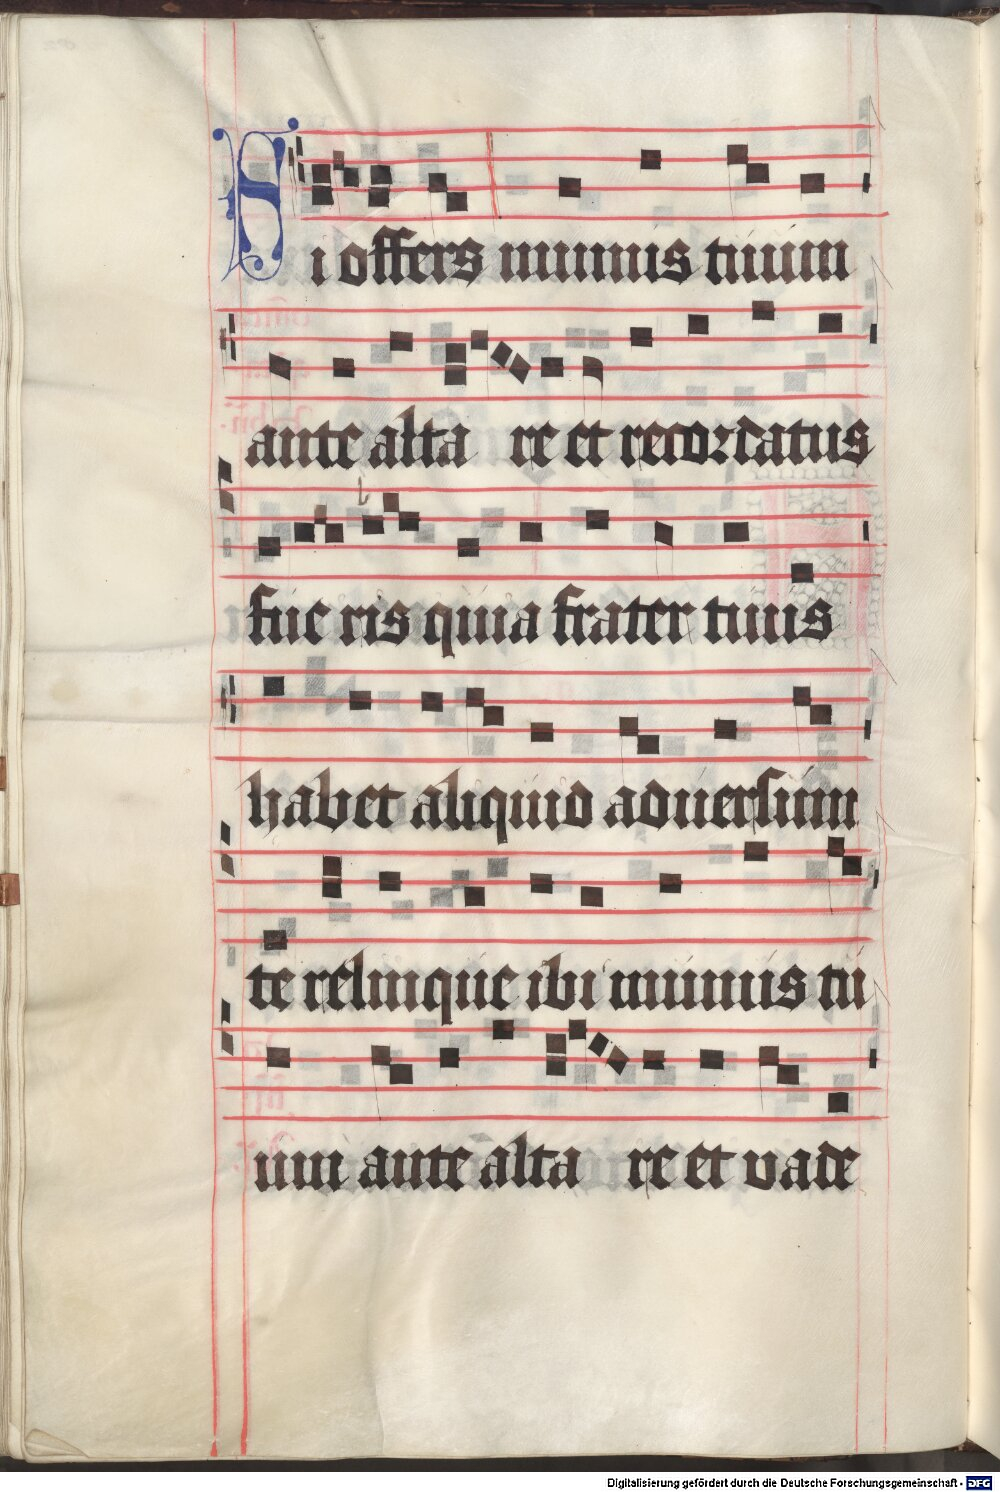 Si offers munus tuum
ante alta re et recordatus
fue ris quia frater tuus
habet aliquid aduersum
te relinque ibi munus tu
um ante alta re et vade
Digitalisierung gefördert durch die Deutsche Forschungsgemeinschaft - DFG